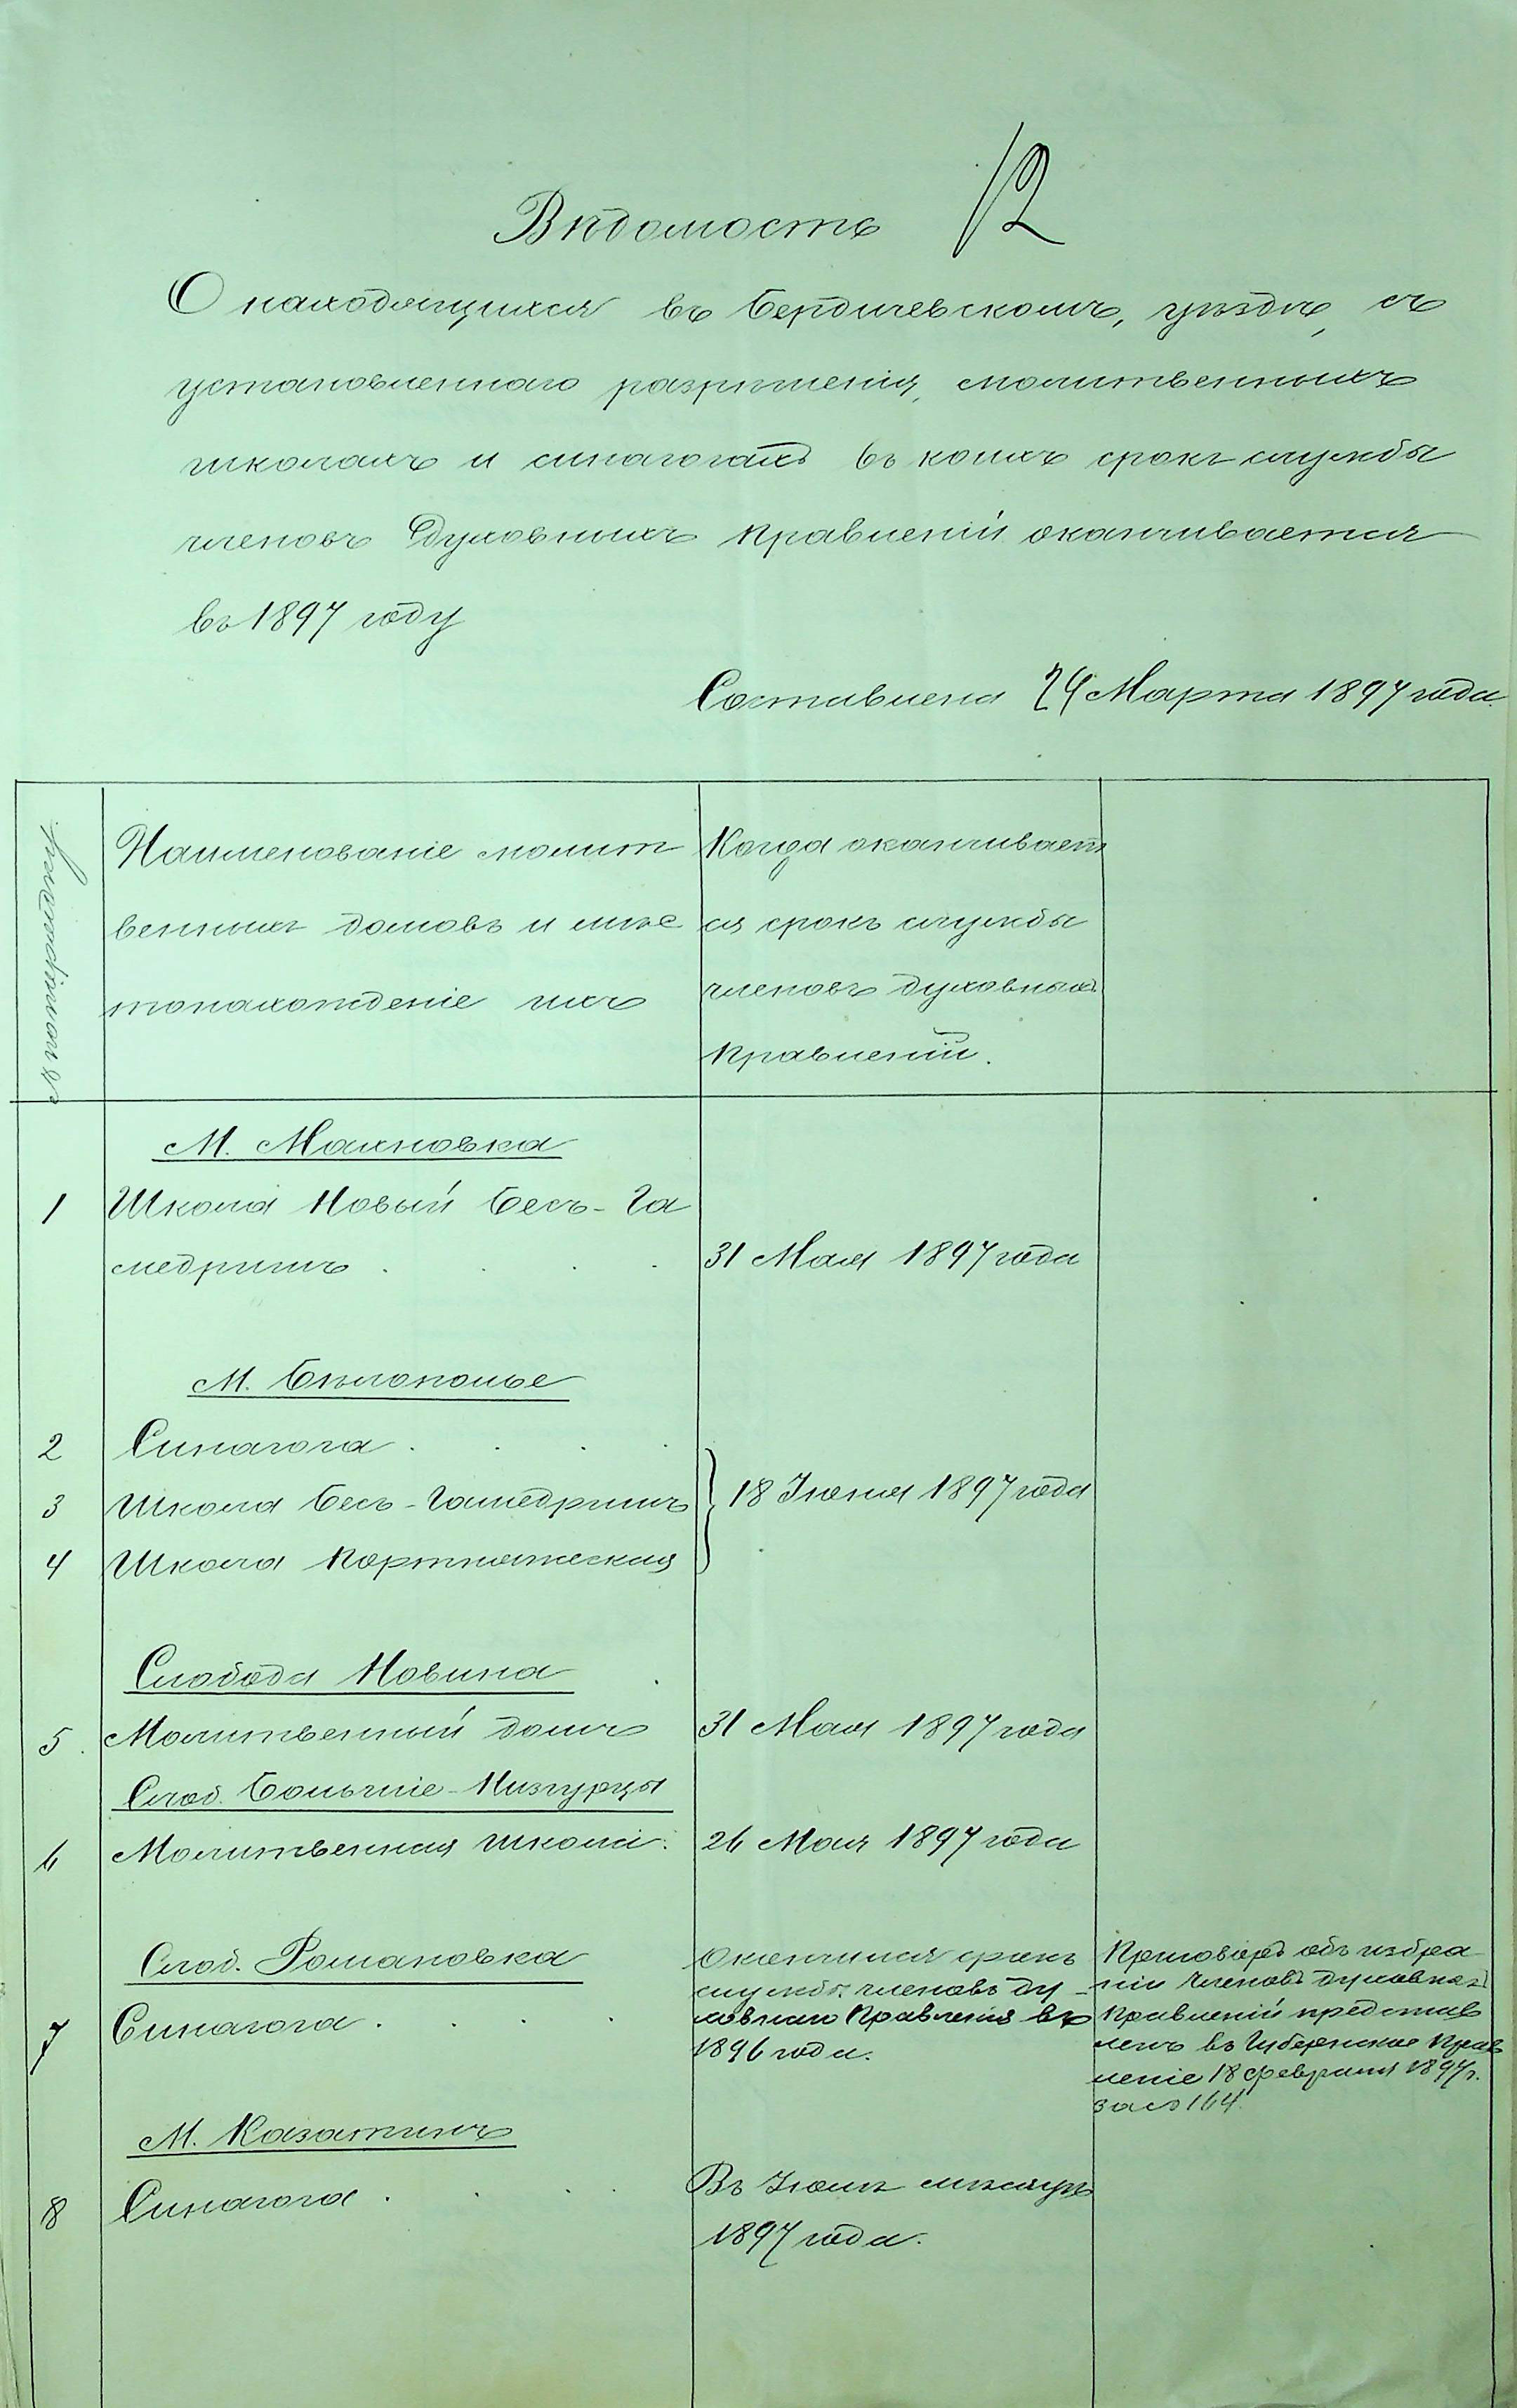 Вѣдомость 12
О находящихся въ Бердичевскомъ, уѣздѣ, съ
установленнаго разрѣшенія, молитвенныхъ
школахъ и синагогахъ въ коихъ срокъ службы
членовъ Духовныхъ Правленій оканчивается
въ 1897 году
Составлена 24 Марта 1897 года.
№ по порядку.
Наименованіе молит
венныхъ домовъ и мѣс
тонахожденіе ихъ
Когда оканчивает
ся срокъ службы
членовъ духовных
Правленій.
М. Махновка
1 Школа Новый Бесъ-Га
медришъ . . . . 31 Мая 1897 года
М. Бѣлополье
2 Синагога . . . .
3 Школа Бесъ-Гамедришъ 18 Іюня 1897 года
4 Школа Портняжеская
Слобода Новина
5 Молитвенный домъ 31 Мая 1897 года
Слоб. Большіе-Низгурцы
6 Молитвенная школа. 26 Мая 1897 года
Слоб. Романовка
7 Синагога . . . .
Окончился срокъ
службы членовъ ду-
ховнаго Правленія въ
1896 года.
Приговоръ объ избра
ніи членовъ духовнаго
Правленій представ
ленъ въ Губернское Прав
леніе 18 февраля 1897 г.
за № 164.
М. Казатинъ
8 Синагога . . . . Въ Іюнѣ мѣсяцѣ
1897 года.